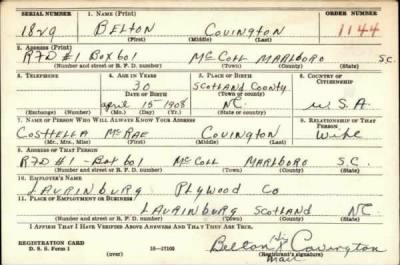 SERIAL NUMBER 1. NAME (Print) ORDER NUMBER
1829 BELTON COVINGTON 1144
(First) (Middle) (Last)
2. ADDRESS (Print)
RFD #1 Box 601 McColl MARLBORO S.C.
(Number and street or R. F. D. number) (Town) (County) (State)
3. TELEPHONE 4. AGE IN YEARS 5. PLACE OF BIRTH 6. COUNTRY OF CITIZENSHIP
30 SCOTLAND COUNTY
DATE OF BIRTH (Town or county)
april 15 1908 NC. U.S.A.
(Exchange) (Number) (Mo.) (Day) (Yr.) (State or country)
7. NAME OF PERSON WHO WILL ALWAYS KNOW YOUR ADDRESS 8. RELATIONSHIP OF THAT PERSON
COSTHELLA McRAE COVINGTON Wife
(Mr., Mrs., Miss) (First) (Middle) (Last)
9. ADDRESS OF THAT PERSON
RFD #1 - Box 601 McColl MARLBORO S.C.
(Number and street or R. F. D. number) (Town) (County) (State)
10. EMPLOYER'S NAME
LAURINBURG PLYWOOD CO
11. PLACE OF EMPLOYMENT OR BUSINESS
LAURINBURG SCOTLAND NC.
(Number and street or R. F. D. number) (Town) (County) (State)
I AFFIRM THAT I HAVE VERIFIED ABOVE ANSWERS AND THAT THEY ARE TRUE.
REGISTRATION CARD
D. S. S. Form 1 (over) 16—17105
his
Belton X Covington
mark
(Registrant's signature)